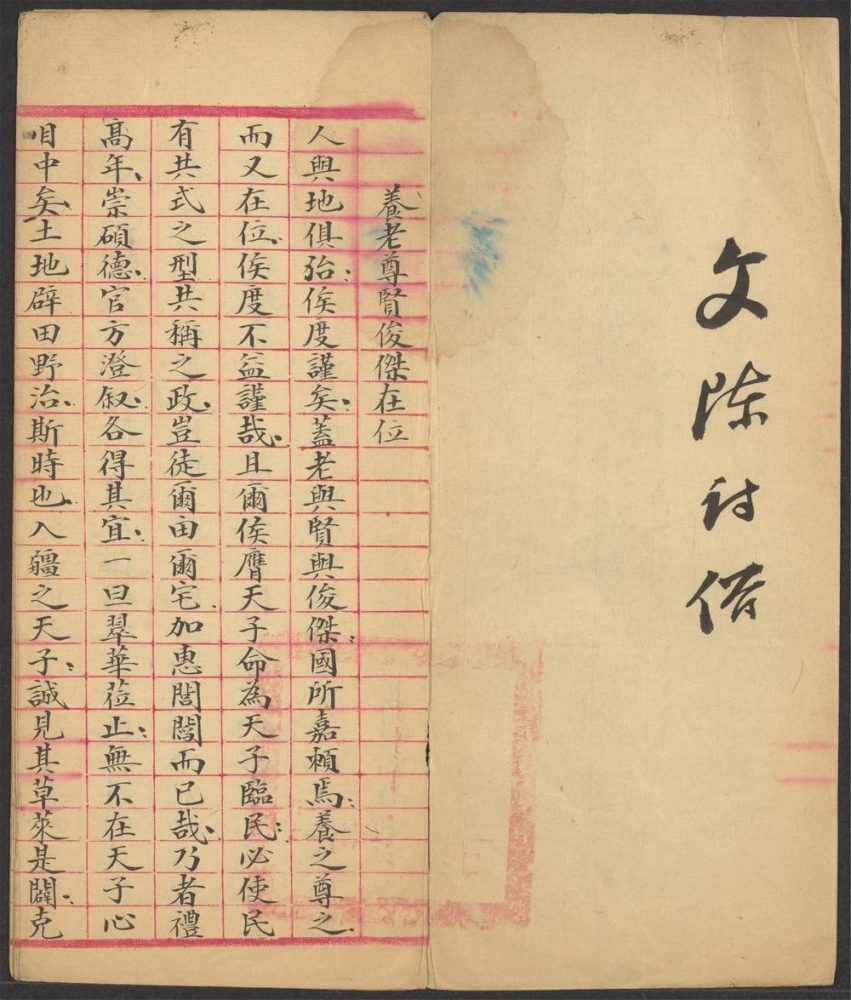 文陈讨借
養老尊賢俊傑在位
人與地俱治侯度謹矣蓋老與賢與俊傑國所嘉賴焉養之尊之
而又在位侯度不益謹哉且爾侯膺天子命為天子臨民必使民
有共式之型共稱之政豈徒爾田爾宅加惠閭閻而已哉乃者禮
高年崇碩德官方澄叙各得其宜一旦翠華莅止無不在天子心
目中矣土地辟田野治斯時也入疆之天子誠見其草萊是闢克